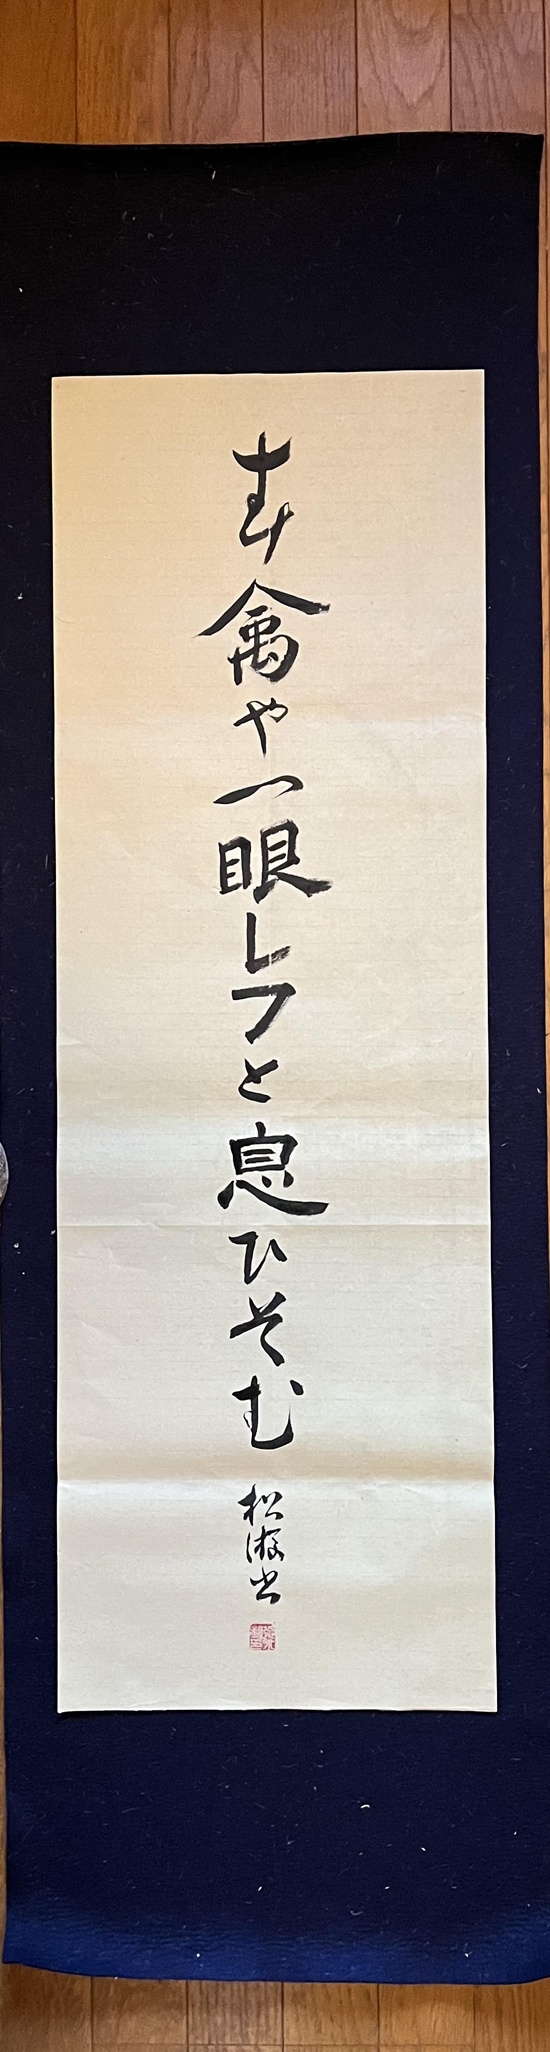 春禽や一眼レフと息ひそむ
松 書